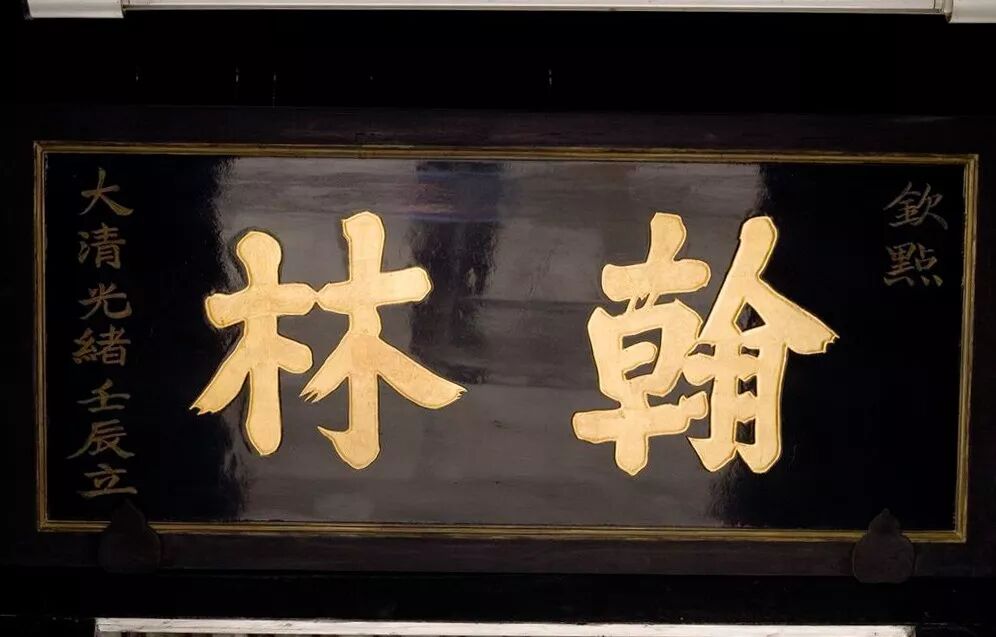 欽點
翰林
大清光緒壬辰立